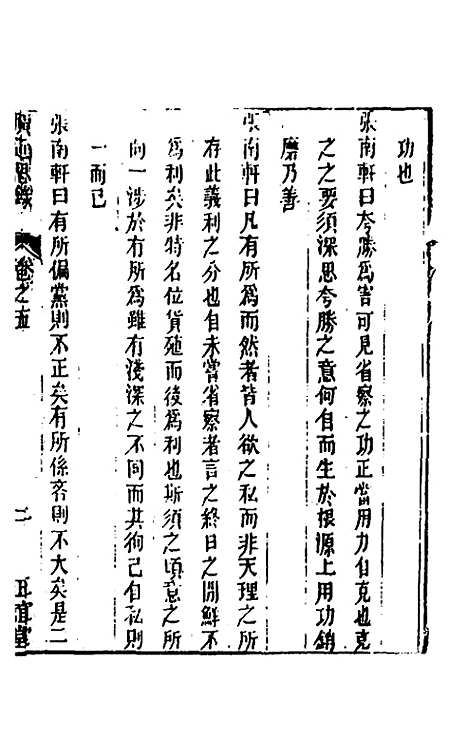 功也
張南軒曰夸勝爲害可見省察之功正當用力自克也克
之之要須深思夸勝之意何自而生於根源上用功銷
磨乃善
張南軒曰凡有所爲而然者皆人欲之私而非天理之所
存此義利之分也自未嘗省察者言之終日之間鮮不
爲利矣非特名位貨殖而後爲利也斯須之頃意之所
向一涉於有所爲雖有淺深之不同而其徇己自私則
一而已
張南軒曰有所偏黨則不正矣有所係吝則不大矣是二
廣近思錄 卷之五 二 正誼堂